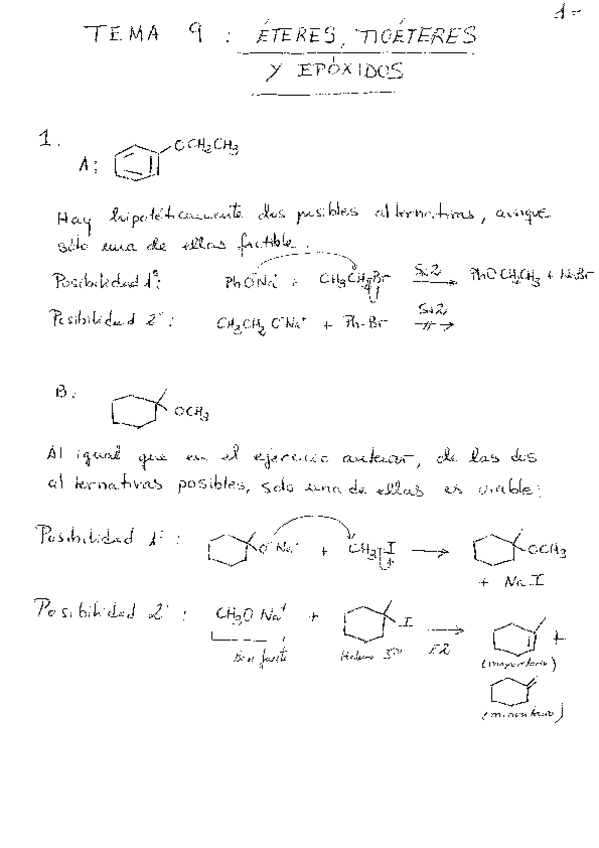 1-
TEMA 9: ÉTERES, TIOÉTERES
Y EPÓXIDOS
1.
A: OCH2CH3
Hay hipotéticamente dos posibles alternativas, aunque
sólo una de ellas factible.
Posibilidad 1ª: PhO⁻Na⁺ + CH3CH2-Br SN2 PhOCH2CH3 + NaBr
Posibilidad 2ª: CH3CH2O⁻Na⁺ + Ph-Br SN2
B: OCH3
Al igual que en el ejercicio anterior, de las dos
alternativas posibles, solo una de ellas es viable:
Posibilidad 1ª: O⁻Na⁺ + CH3-I OCH3
+ NaI
Posibilidad 2ª: CH3O Na⁺ + I E2 +
(mayoritario)
(minoritario)